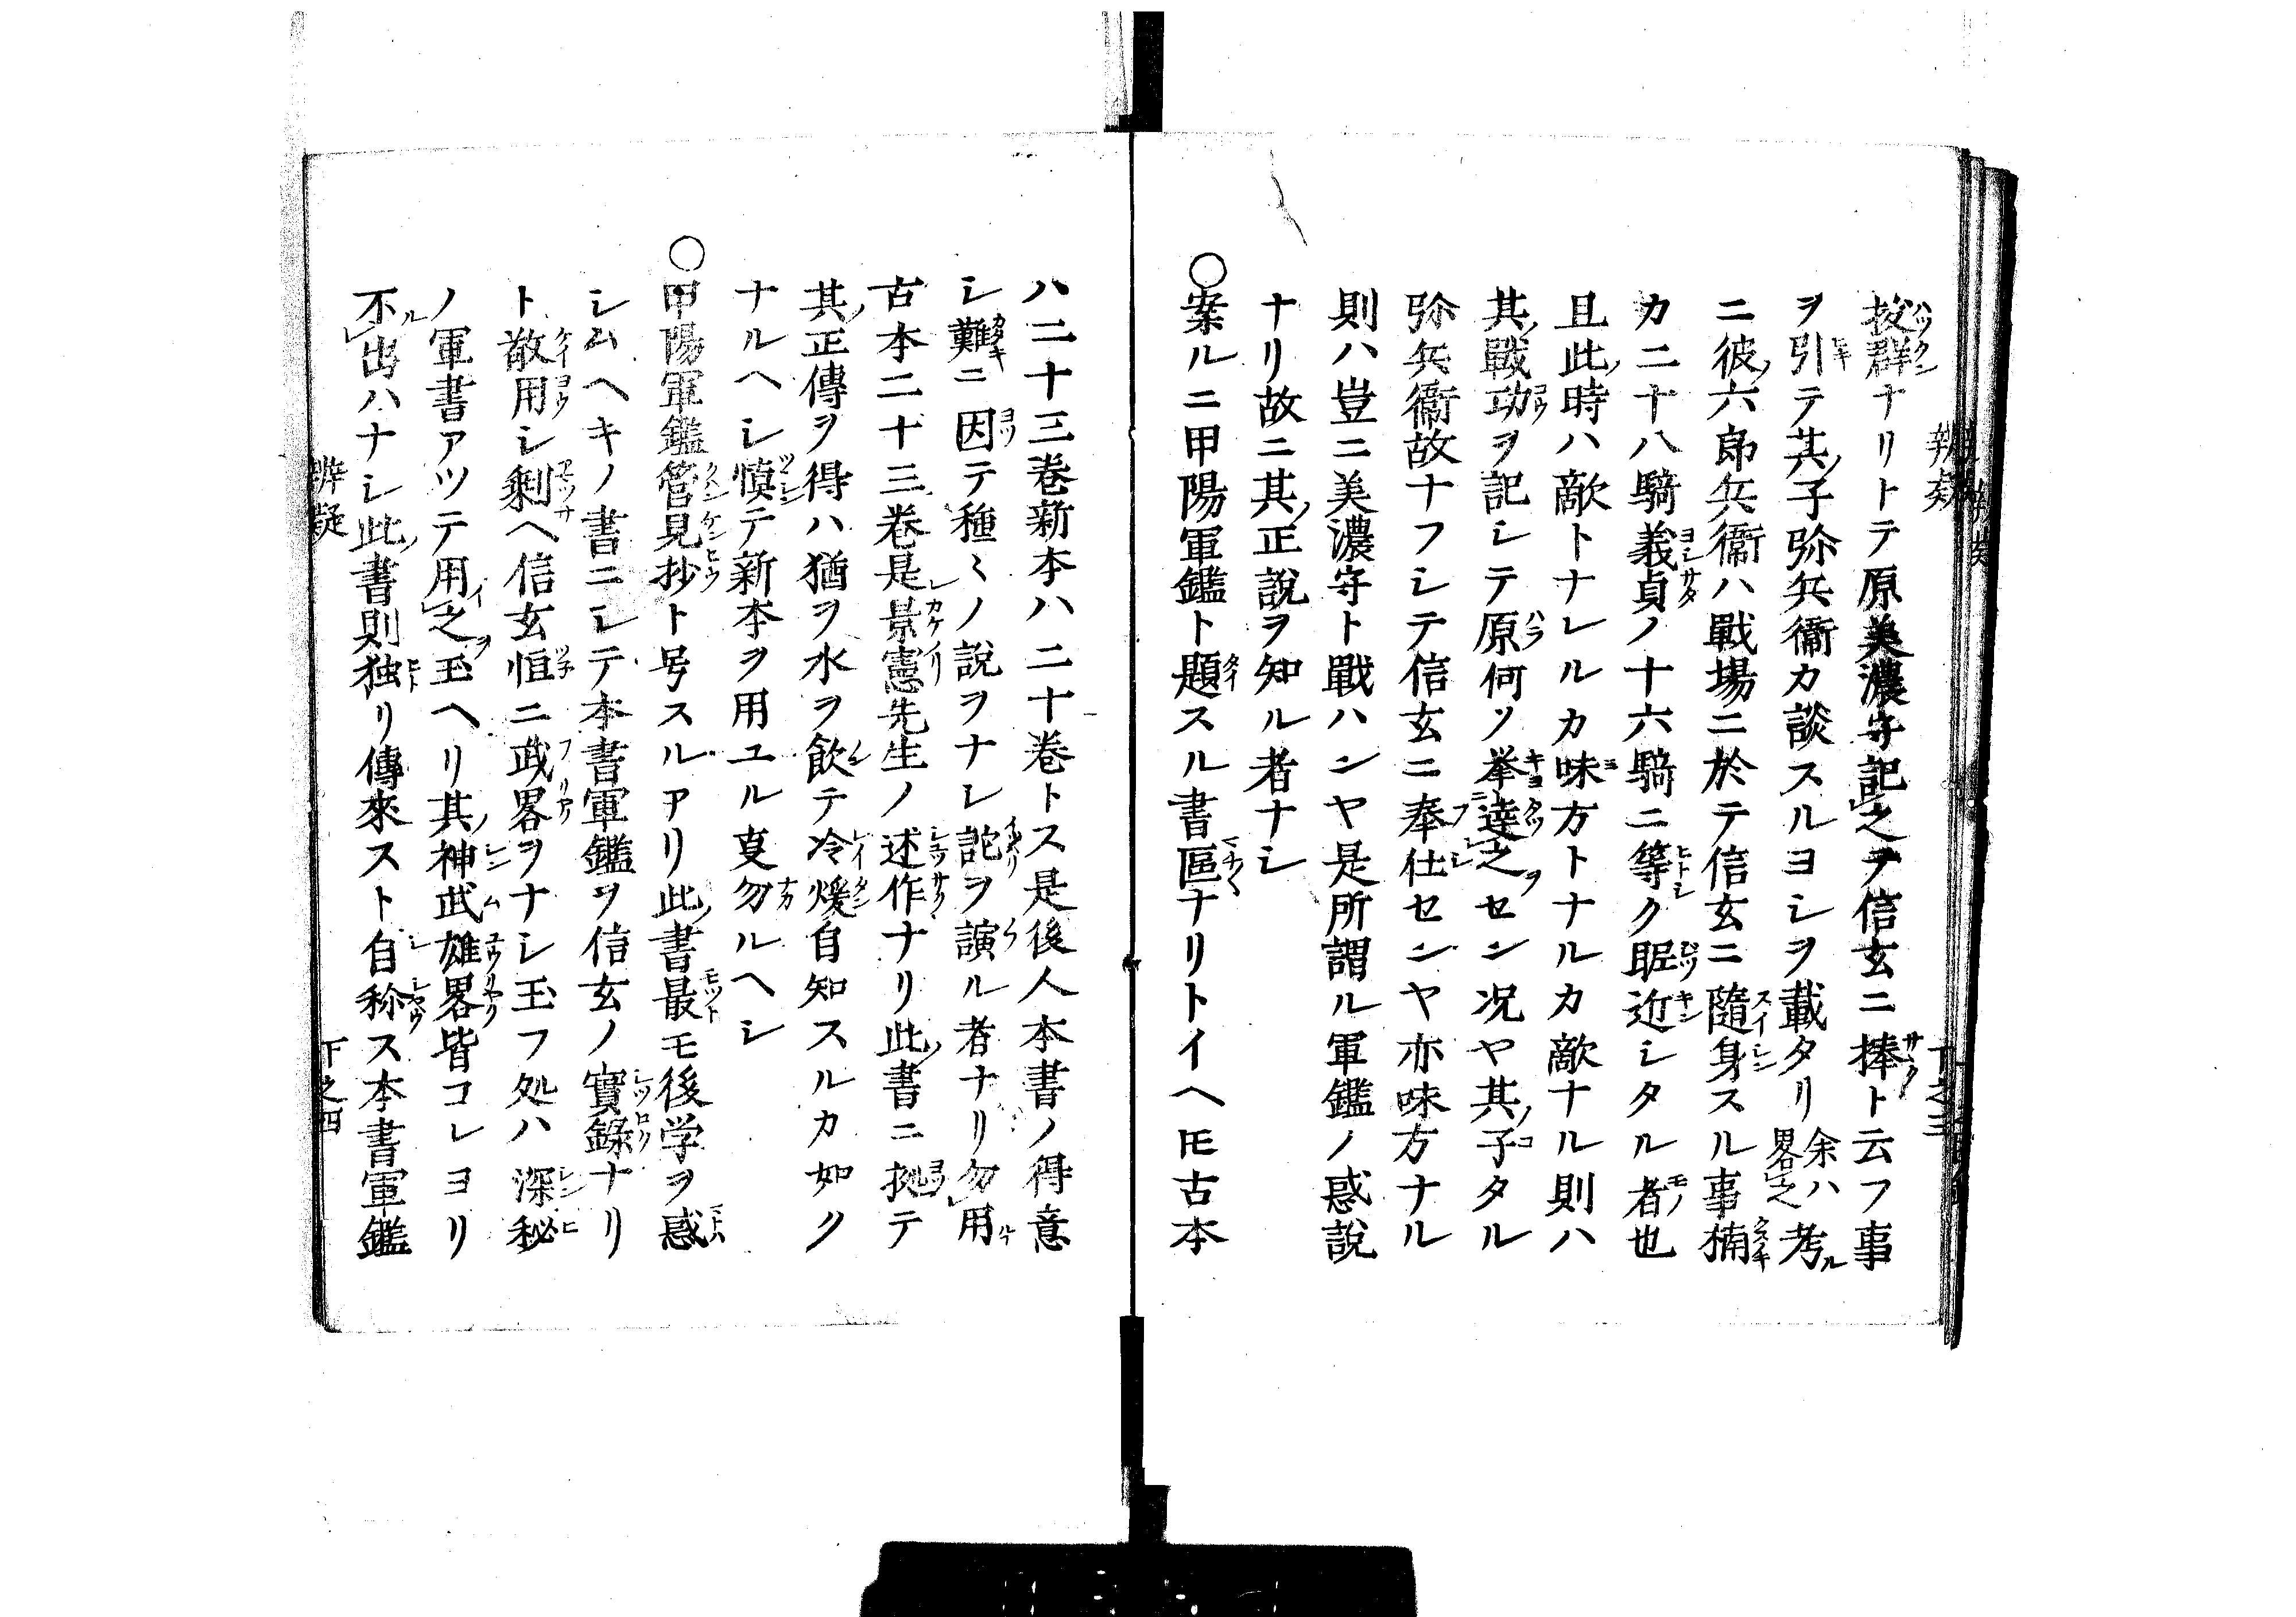 拔群ナリトテ原美濃守記之ヲ信玄ニ捧ト云フ事
ヲ引テ其子弥兵衞カ談スルヨシヲ載タリ余ハ考畧之
ニ彼六郎兵衞ハ戰場ニ於テ信玄ニ隨身スル事楠
カ二十八騎義貞ノ十六騎ニ等ク昵近シタル者也
且此時ハ敵トナレルカ味方トナルカ敵ナル則ハ
其戰功ヲ記シテ原何ソ挙達之セン況ヤ其子タル
弥兵衞故ナフシテ信玄ニ奉仕センヤ亦味方ナル
則ハ豈ニ美濃守ト戰ハンヤ是所謂ル軍鑑ノ惑説
ナリ故ニ其正説ヲ知ル者ナシ
〇案ルニ甲陽軍鑑ト題スル書區ナリトイヘ𪜈古本
ハ二十三巻新本ハ二十巻トス是後人本書ノ得意
シ難ニ因テ種〻ノ説ヲナシ詑ヲ演ル者ナリ勿用
古本二十三巻是景憲先生ノ述作ナリ此書ニ拠テ
其正傳ヲ得ハ猶ヲ水ヲ飲テ冷煖自知スルカ如ク
ナルヘシ慎テ新本ヲ用ユル叓勿ルヘシ
〇甲陽軍鑑管見抄ト号スルアリ此書最モ後学ヲ惑
シムヘキノ書ニシテ本書軍鑑ヲ信玄ノ實録ナリ
ト敬用シ剰ヘ信玄恒ニ武畧ヲナシ玉フ処ハ深秘
ノ軍書アツテ用之玉ヘリ其神武雄畧皆コレヨリ
不出ハナシ此書則独リ傳來スト自称ス本書軍鑑
辨疑
下之四